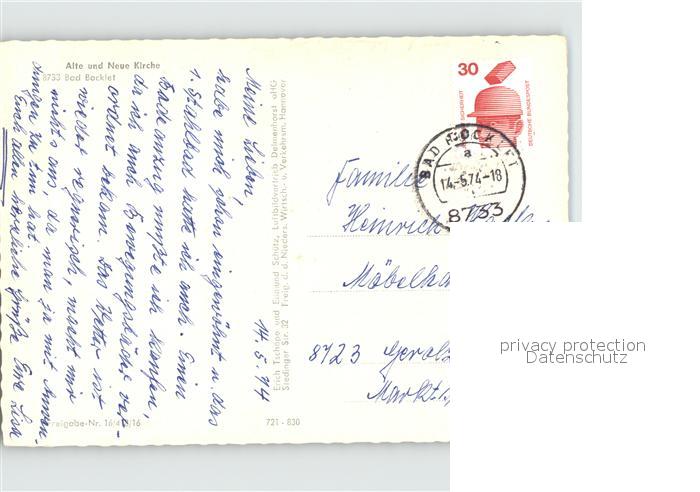 Alte und Neue Kirche
8733 Bad Bocklet
14.5.74
Meine Lieben,
habe mich schon eingewöhnt u. das
1. Stahlbad hatte ich auch. Einen
Badeanzug mußte ich kaufen,
da ich auch Bewegungsbäder ver-
ordnet bekam. Das Wetter ist
wieder regnerisch, macht mir
nichts aus, da man ja mit Anwen-
dungen zu tun hat.
Euch allen herzliche Grüße Eure Lisa
Freigabe-Nr. 16/4 /16
721 - 830
Erich Tschöpe und Edmund Schütz, Luftbildvertrieb Delmenhorst oHG
Stedinger Str. 32 Freig. d. d. Nieders. Wirtsch.- u. Verkehrsm. Hannover
30
SICHERHEIT
DEUTSCHE BUNDESPOST
BAD BOCKLET
a
14.-5.74-18
8733
Familie
Heinrich
Möbelha
8723 Gerolz
Markt
privacy protection
Datenschutz